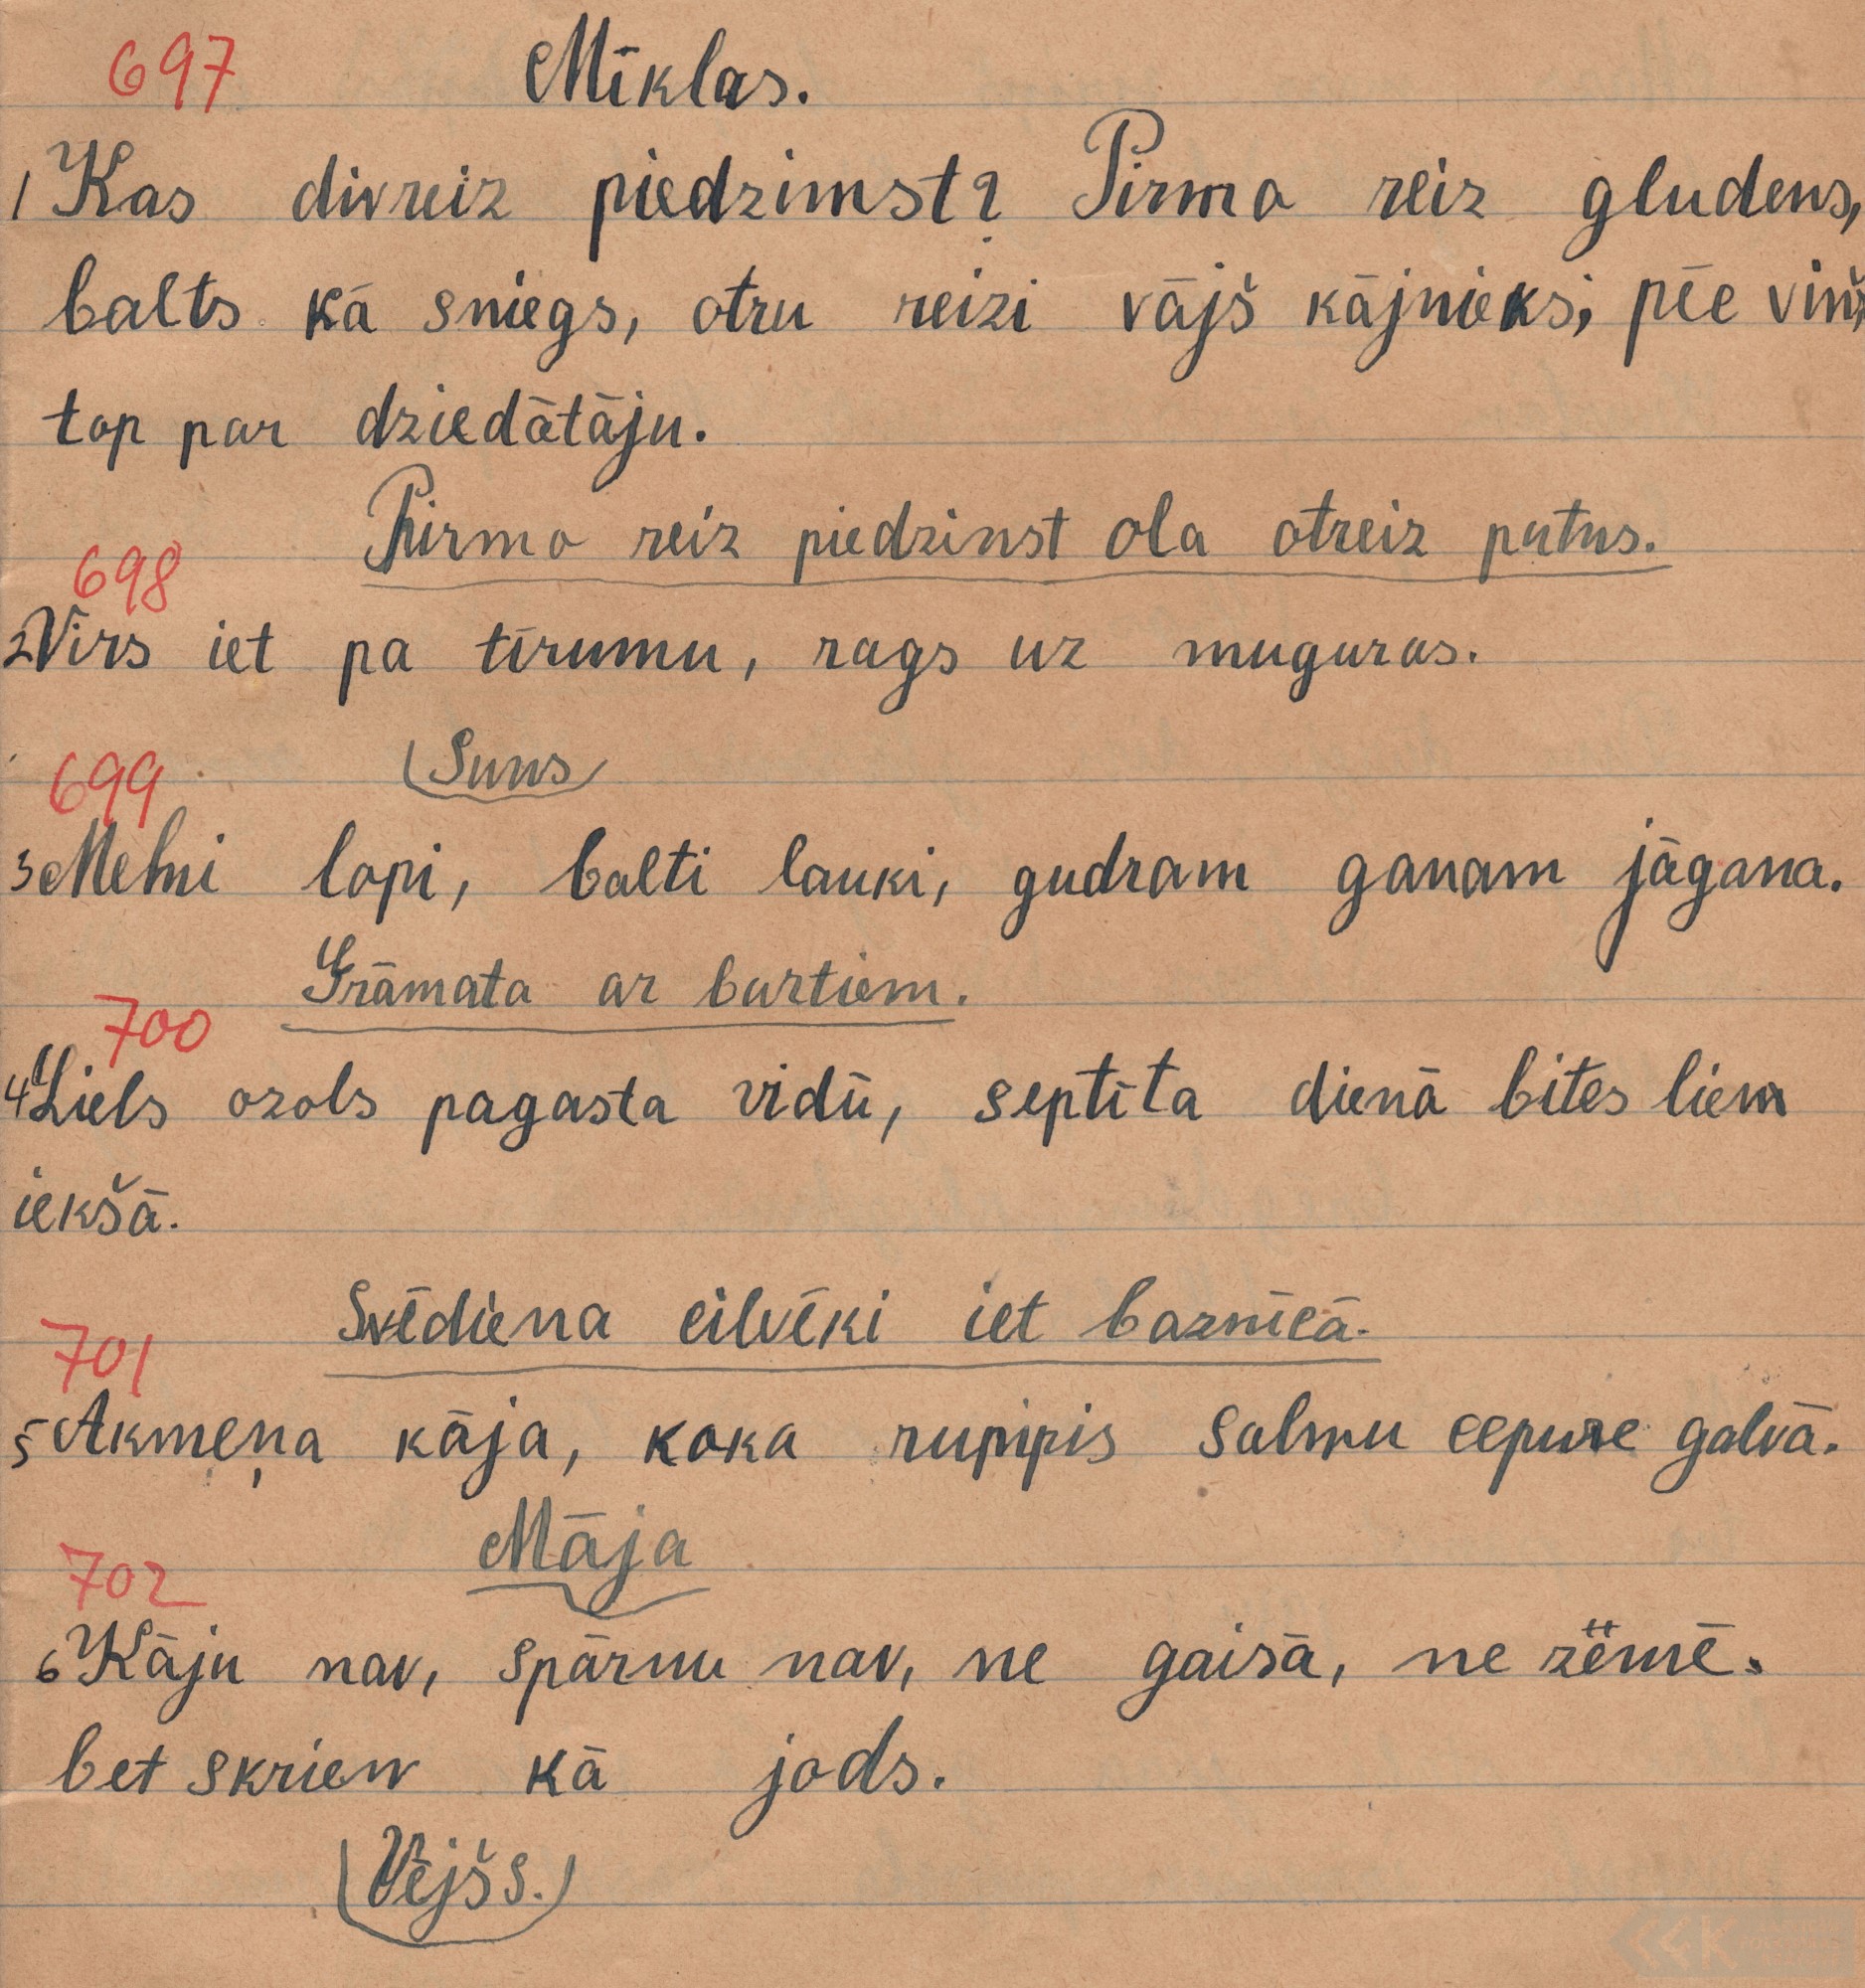 697 Mīklas.
1 Kas divreiz piedzimst? Pirmo reiz gludens,
balts kā sniegs, otru reizi vājš kājnieks; pēc viņš
top par dziedātāju.
Pirmo reiz piedzinst ola otreiz putns.
698
2 Vīrs iet pa tīrumu, rags uz muguras.
(Suns)
699
3 Melni lopi, balti lauki, gudram ganam jāgana.
Grāmata ar burtiem.
700
4 Liels ozols pagasta vidū, septīta dienā bites lien
iekšā.
Svēdiena cilvēki iet baznīcā.
701
5 Akmeņa kāja, koka rumpis salmu cepure galvā.
Māja
702
6 Kāju nav, spārnu nav, ne gaisā, ne zëmē.
bet skrien kā jods.
(Vējšs.)